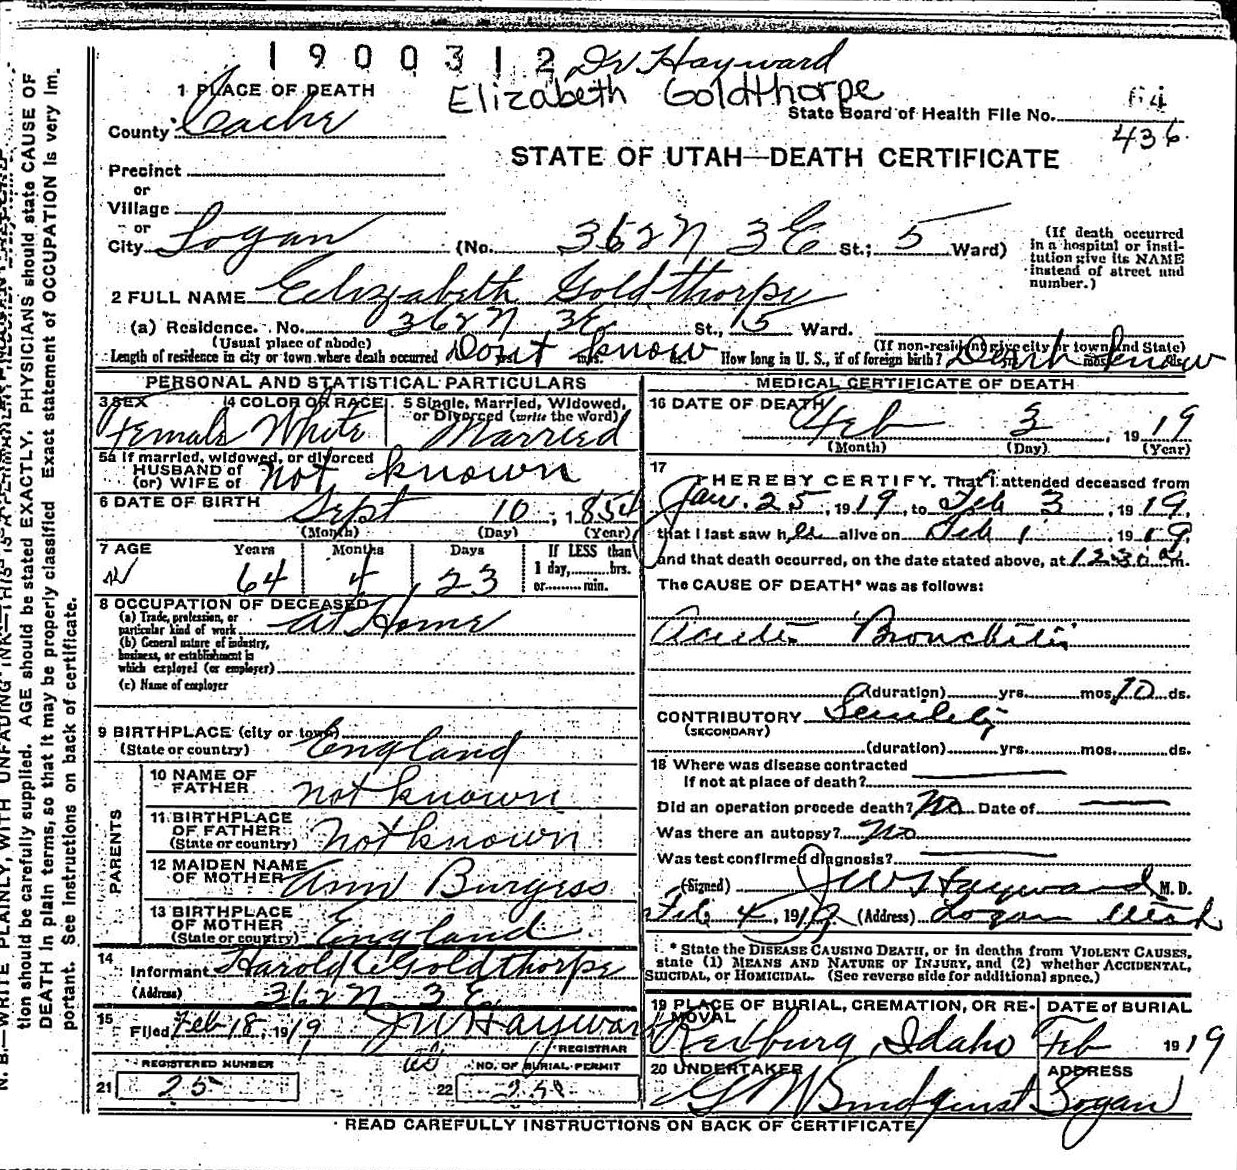 1900312 Dr Hayward
Elizabeth Goldthorpe
1 PLACE OF DEATH
State Board of Health File No. 64
436
County Cache
STATE OF UTAH—DEATH CERTIFICATE
Precinct
or
Village
or
City Logan (No. 362 N 3 E St.; 5 Ward)
(If death occurred in a hospital or insti-
tution give its NAME
instead of street and
number.)
2 FULL NAME Elizabeth Goldthorpe
(a) Residence. No. 362 N 3E St., 5 Ward.
(Usual place of abode) (If non-resident give city or town and State)
Length of residence in city or town where death occurred Dont know How long in U. S., if of foreign birth? Dont know
PERSONAL AND STATISTICAL PARTICULARS
3 SEX 4 COLOR OR RACE 5 Single, Married, Widowed,
or Divorced (write the word)
Female White Married
5a If married, widowed, or divorced
HUSBAND of
(or) WIFE of not known
6 DATE OF BIRTH Sept 10, 1854
(Month) (Day) (Year)
7 AGE Years Months Days If LESS than
1 day, hrs.
or min.
64 4 23
8 OCCUPATION OF DECEASED
(a) Trade, profession, or
particular kind of work at Home
(b) General nature of industry,
business, or establishment in
which employed (or employer)
(c) Name of employer
9 BIRTHPLACE (city or town)
(State or country) England
PARENTS
10 NAME OF
FATHER not known
11 BIRTHPLACE
OF FATHER
(State or country) not known
12 MAIDEN NAME
OF MOTHER Ann Burgess
13 BIRTHPLACE
OF MOTHER
(State or country) England
14
Informant Harold C Goldthorpe
(Address) 362 N 3 E
15 Filed Feb 18, 1919 JW Hayward
REGISTRAR
REGISTERED NUMBER NO. OF BURIAL PERMIT
21 25 22
MEDICAL CERTIFICATE OF DEATH
16 DATE OF DEATH
Feb 3, 1919
(Month) (Day) (Year)
17
I HEREBY CERTIFY, That I attended deceased from
Jan. 25, 1919, to Feb 3, 1919.
that I last saw her alive on Feb 1, 1919.
and that death occurred, on the date stated above, at 12:30 a m.
The CAUSE OF DEATH* was as follows:
Acute Bronchitis
(duration) yrs. mos. 10 ds.
CONTRIBUTORY Senility
(SECONDARY)
(duration) yrs. mos. ds.
18 Where was disease contracted
If not at place of death?
Did an operation precede death? No Date of
Was there an autopsy? No
Was test confirmed diagnosis?
(Signed) JW Hayward, M. D.
Feb 4, 1919 (Address) Logan Utah
* State the DISEASE CAUSING DEATH, or in deaths from VIOLENT CAUSES,
state (1) MEANS AND NATURE OF INJURY, and (2) whether ACCIDENTAL,
SUICIDAL, or HOMICIDAL. (See reverse side for additional space.)
19 PLACE OF BURIAL, CREMATION, OR RE-
MOVAL DATE of BURIAL
Rexburg, Idaho Feb 1919
20 UNDERTAKER ADDRESS
Logan
READ CAREFULLY INSTRUCTIONS ON BACK OF CERTIFICATE
N. B.—WRITE PLAINLY, WITH UNFADING INK—THIS IS A PERMANENT
tion should be carefully supplied. AGE should be stated EXACTLY. PHYSICIANS should state CAUSE OF
DEATH in plain terms, so that it may be properly classified Exact statement of OCCUPATION is very im-
portant. See instructions on back of certificate.